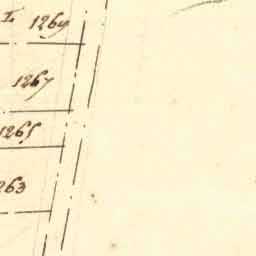 1269
1267
1265
1263